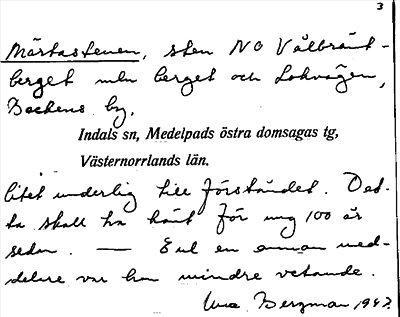 3
Märtastenen, sten NO Vålbränt-
berget mln berget och Lokvägen,
Backens by.
Indals sn, Medelpads östra domsagas tg,
Västernorrlands län.
litet underlig till förståndet. Det-
ta skall ha hänt för ung 100 år
sedan. — Enl en annan med-
delare var han mindre vetande.
Bergman 1947.